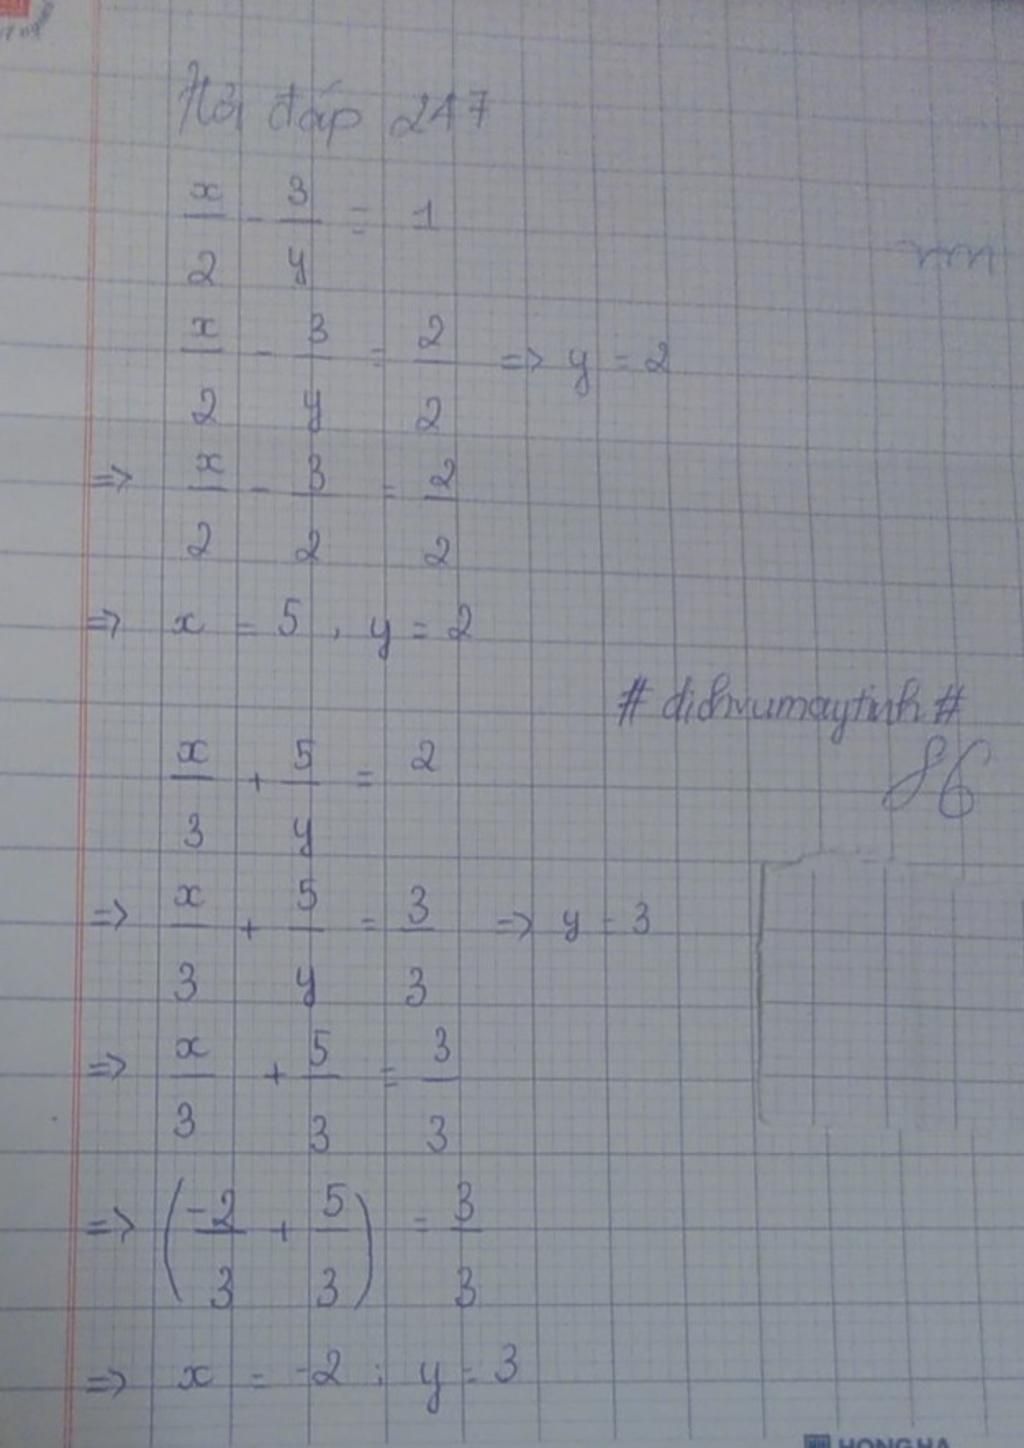 Hỏi đáp 247
x/2 - 3/y = 1
x/2 - 3/y = 2/2 => y = 2
=> x/2 - 3/2 = 2/2
=> x = 5, y = 2
# dichvumaytinh #
86
x/3 + 5/y = 2
=> x/3 + 5/y = 3/3 => y = 3
=> x/3 + 5/3 = 3/3
=> (-2/3 + 5/3) = 3/3
=> x = -2; y = 3
HONG HA